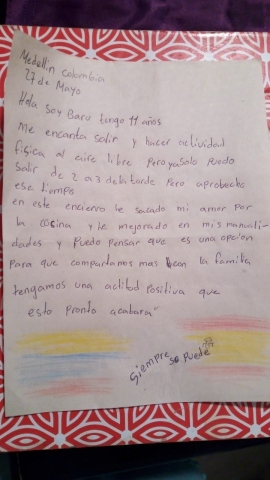 Medellin Colombia
27 de Mayo
Hola soy Baru tengo 11 años
Me encanta salir y hacer actividad
fisica al aire libre Pero ya solo Puedo
salir de 2 a 3 de la tarde Pero aprobecho
ese tiempo
en este encierro he sacado mi amor Por
la cocina y he mejorado en mis manuali-
dades y Puedo Pensar que es una opcion
Para que compartamos mas con la familia
tengamos una actitud Positiva que
esto Pronto acabara"
Siempre se puede